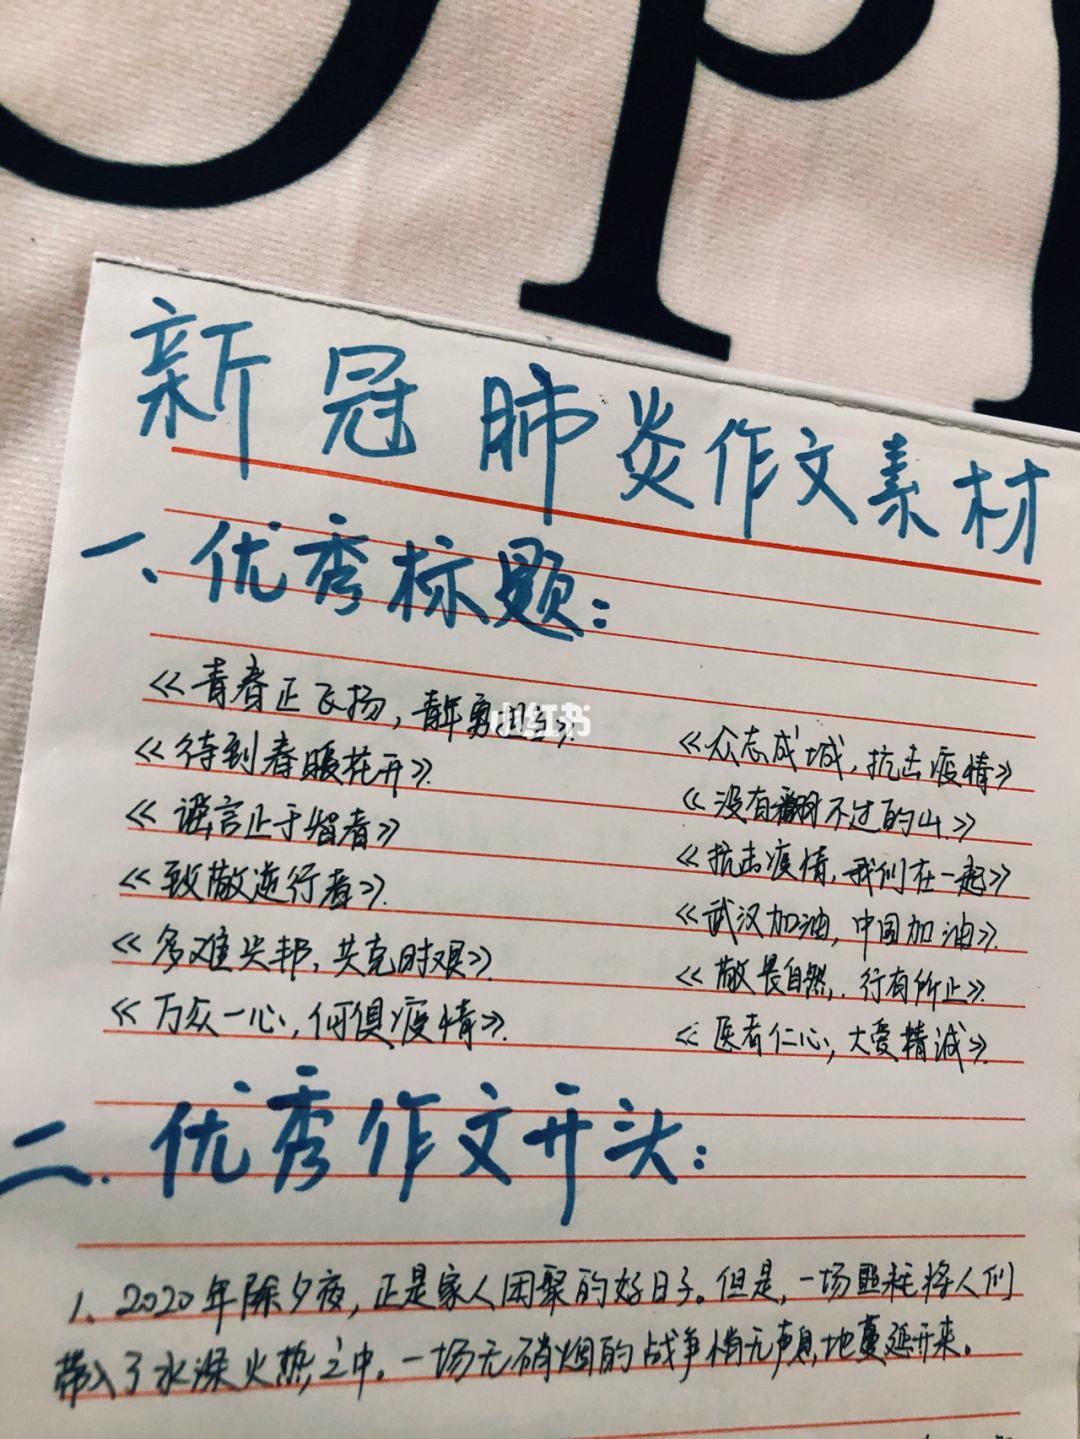 新冠肺炎作文素材
一、优秀标题:
《青春正飞扬，青年勇担当》
小红书
《待到春暖花开》
《谣言止于智者》
《致敬逆行者》
《多难兴邦，共克时艰》
《万众一心，何惧疫情》
《众志成城，抗击疫情》
《没有翻不过的山》
《抗击疫情，我们在一起》
《武汉加油，中国加油》
《敬畏自然，行有所止》
《医者仁心，大爱精诚》
二.优秀作文开头:
1、2020年除夕夜，正是家人团聚的好日子。但是，一场噩耗将人们
带入了水深火热之中。一场无硝烟的战争悄无声息地蔓延开来。